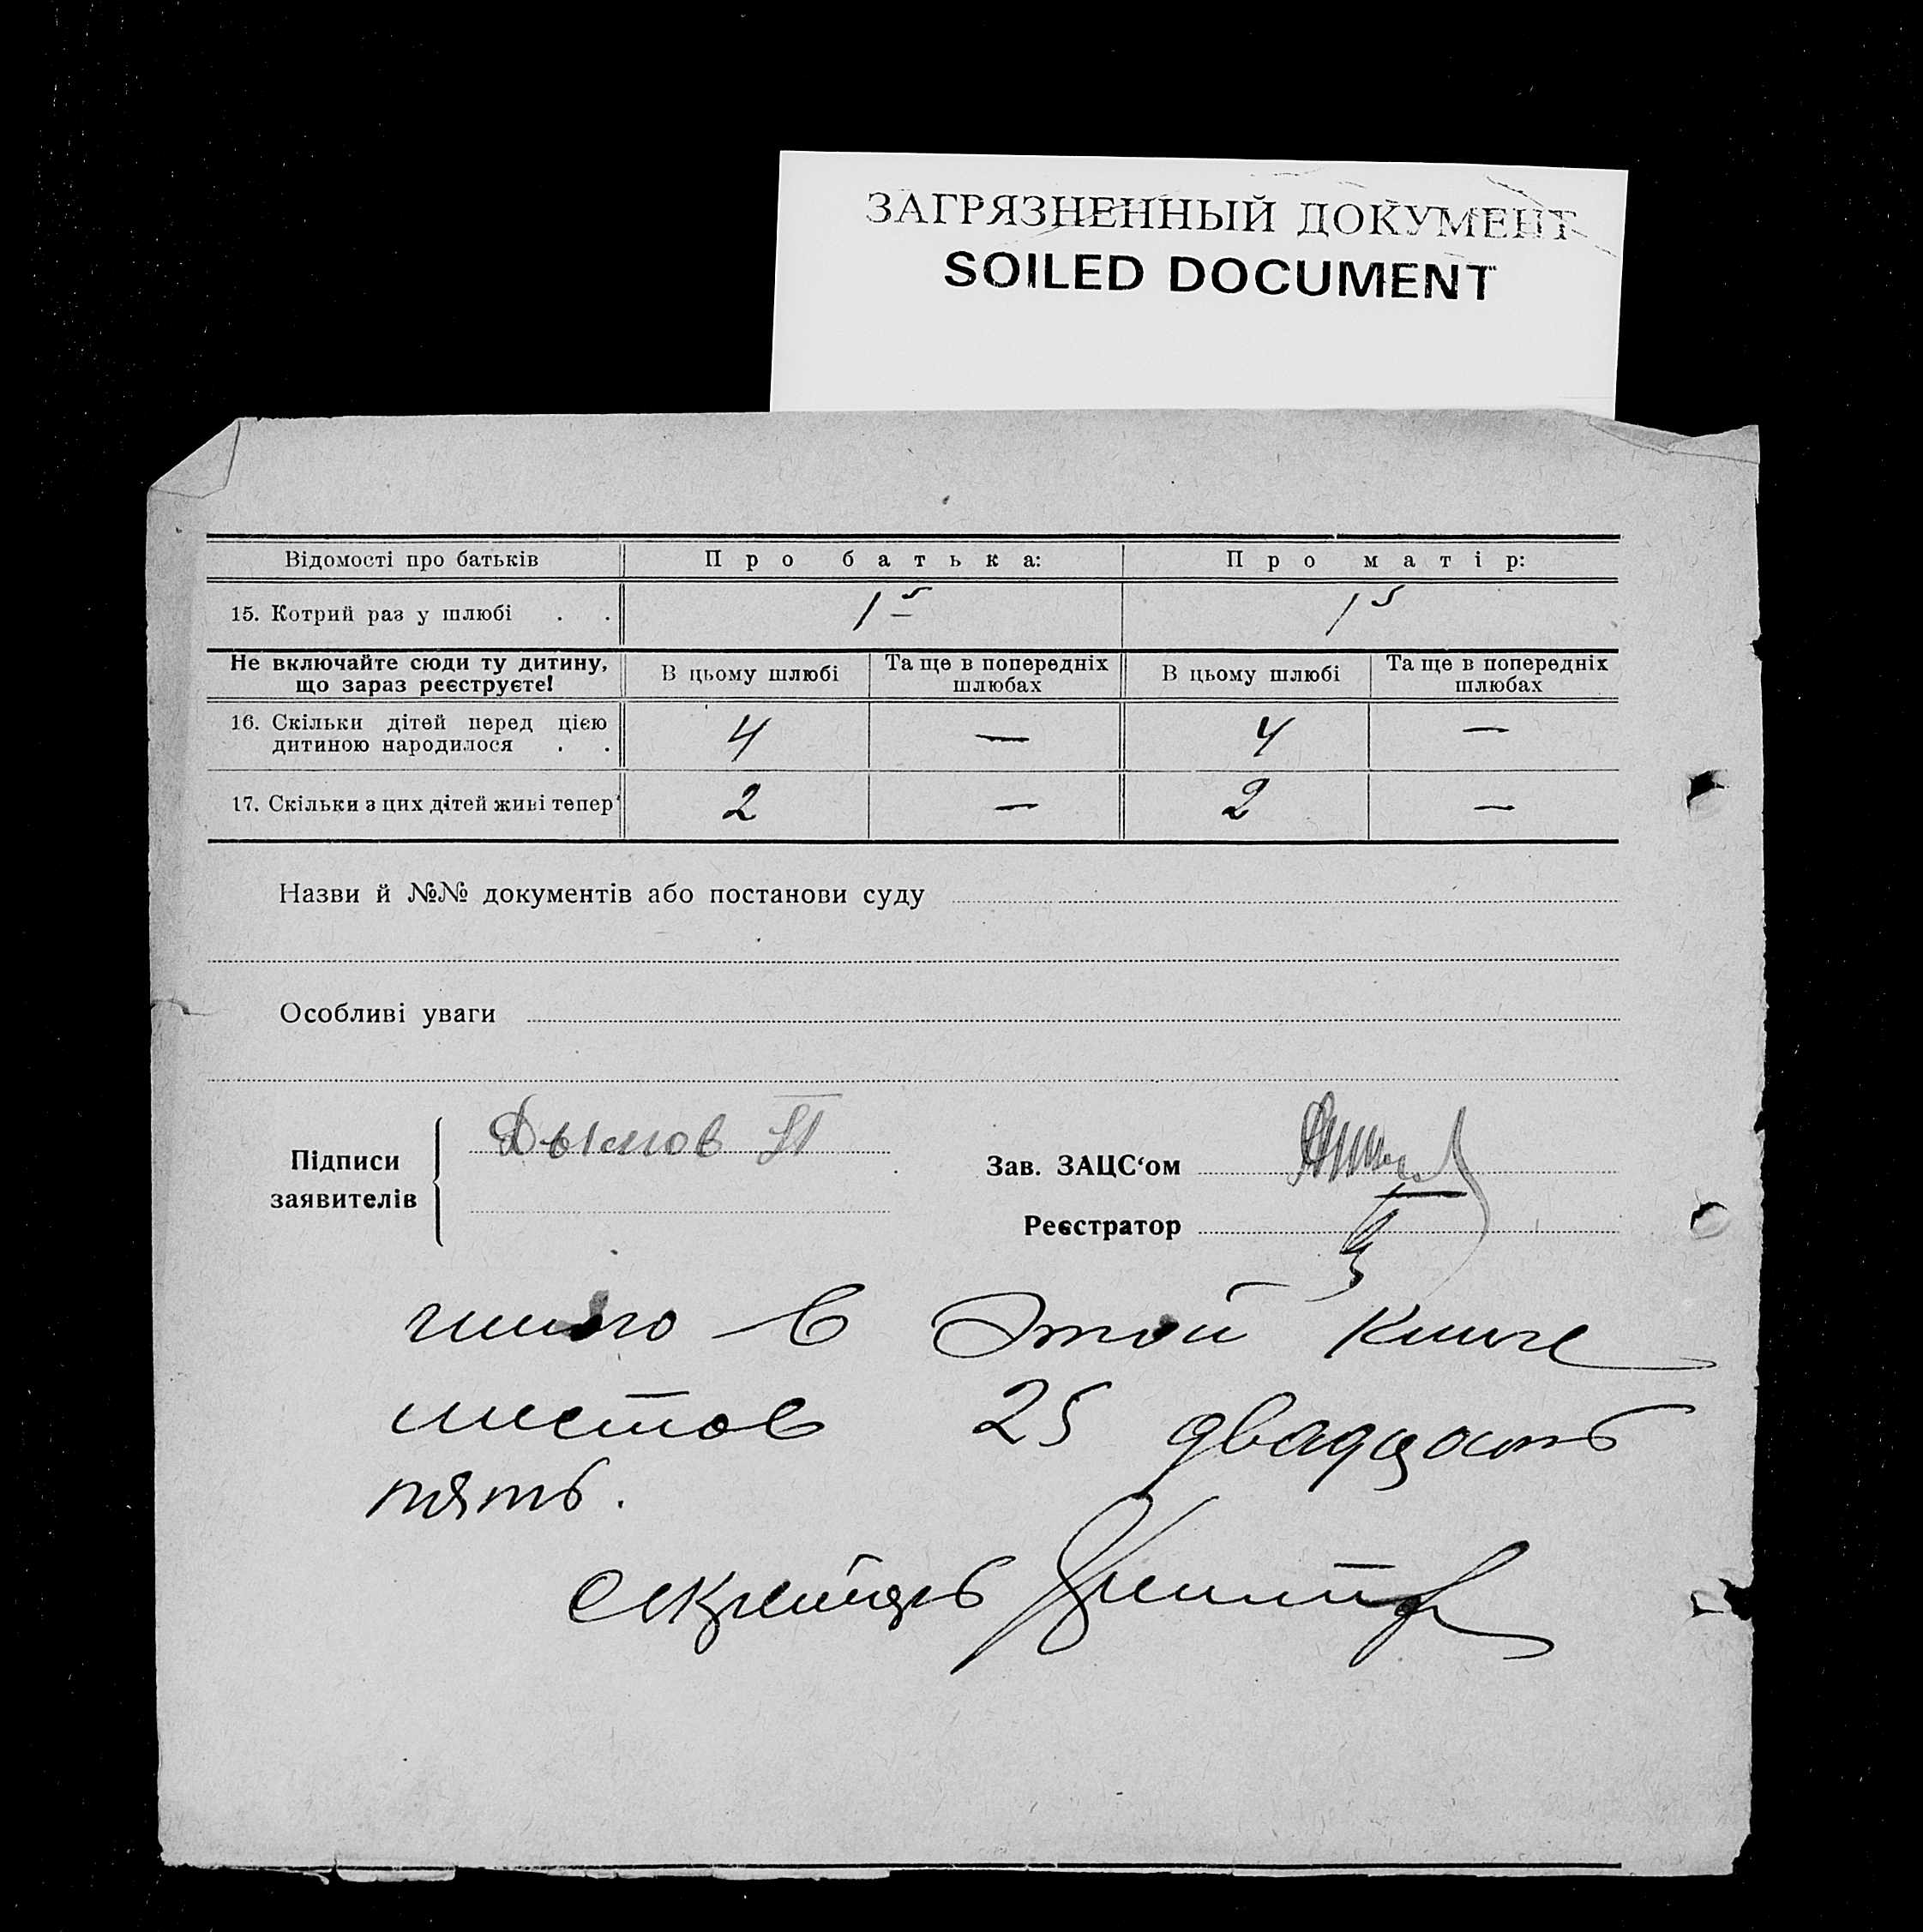 ЗАГРЯЗНЕННЫЙ ДОКУМЕНТ
SOILED DOCUMENT
Відомості про батьків Про батька: Про матір:
15. Котрий раз у шлюбі . . 1 1
Не включайте сюди ту дитину, що зараз реєструєте! В цьому шлюбі Та ще в попередніх шлюбах В цьому шлюбі Та ще в попередніх шлюбах
16. Скільки дітей перед цією дитиною народилося . . 4 — 4 —
17. Скільки з цих дітей живі тепер 2 — 2 —
Назви й №№ документів або постанови суду
Особливі уваги
Підписи заявителів Дымов П
Зав. ЗАЦС‘ом
Реєстратор
в этой книге
листов 25 двадцать
пять.
секретарь